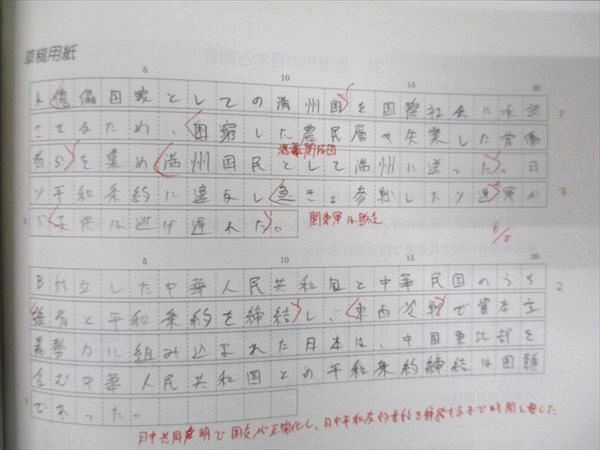 草稿用紙
5 10 15 20
A傀儡国家としての満州国を国際社会に承認
させるため、困窮した農民層や失業した労働
者らを集め満州国民として満州に送った。日
満蒙開拓団
ソ平和条約に違反し急きょ参戦したソ連軍か
3
ら子供は逃げ遅れた。
関東軍は
6/8
5 10 15 20
B対立した中華人民共和国と中華民国のうち
2
後者と平和条約を締結し、東西冷戦で資本主
義勢力に組み込まれた日本は、中国東北部を
含む中華人民共和国との平和条約締結は困難
であった。
日中共同声明で国交が正常化し、日中平和友好条約を締結するまで時間を要した